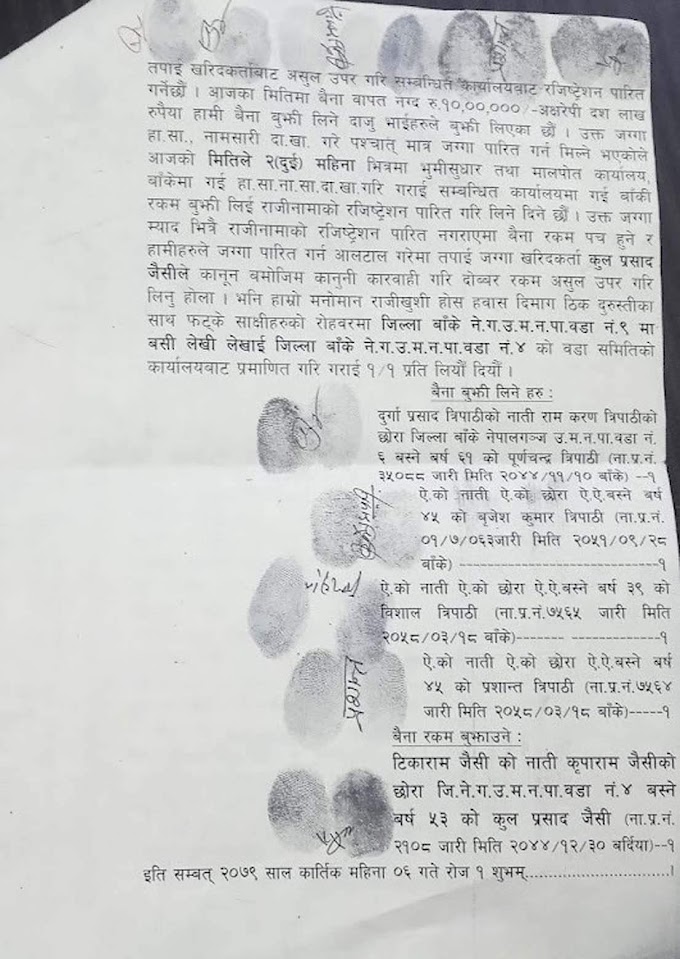 तपाई खरिदकर्ताबाट असुल उपर गरि सम्बन्धित कार्यालयबाट रजिष्ट्रेशन पारित
गर्नेछौं । आजका मितिमा बैना वापत नग्द रु.१०,००,०००/-अक्षरेपी दश लाख
रुपैया हामी बैना बुझी लिने दाजु भाईहरुले बुझी लिएका छौं । उक्त जग्गा
हा.सा., नामसारी दा.खा. गरे पश्चात् मात्र जग्गा पारित गर्न मिल्ने भएकोले
आजको मितिले २(दुई) महिना भित्रमा भुमीसुधार तथा मालपोत कार्यालय,
बाँकेमा गई हा.सा.ना.सा.दा.खा.गरि गराई सम्बन्धित कार्यालयमा गई बाँकी
रकम बुझी लिई राजीनामाको रजिष्ट्रेशन पारित गरि लिने दिने छौं । उक्त जग्गा
म्याद भित्रै राजीनामाको रजिष्ट्रेशन पारित नगराएमा बैना रकम पच हुने र
हामीहरुले जग्गा पारित गर्न आलटाल गरेमा तपाई जग्गा खरिदकर्ता कुल प्रसाद
जैसीले कानून बमोजिम कानुनी कारवाही गरि दोब्बर रकम असुल उपर गरि
लिनु होला । भनि हाम्रो मनोमान राजीखुशी होस हवास दिमाग ठिक दुरुस्तीका
साथ फट्के साक्षीहरुको रोहवरमा जिल्ला बाँके ने.ग.उ.म.न.पा.वडा नं.९ मा
बसी लेखी लेखाई जिल्ला बाँके ने.ग.उ.म.न.पा.वडा नं.४ को वडा समितिको
कार्यालयबाट प्रमाणित गरि गराई १/१ प्रति लियौं दियौं ।
बैना बुझी लिने हरु :
दुर्गा प्रसाद त्रिपाठीको नाती राम करण त्रिपाठीको
छोरा जिल्ला बाँके नेपालगञ्ज उ.म.न.पा.वडा नं.
६ बस्ने बर्ष ६१ को पूर्णचन्द्र त्रिपाठी (ना.प्र.नं.
३५०८८ जारी मिति २०४४/११/१० बाँके) --१
ऐ.को नाती ऐ.को छोरा ऐ.ऐ.बस्ने बर्ष
४५ को बृजेश कुमार त्रिपाठी (ना.प्र.नं.
०१/७/०६३जारी मिति २०५१/०९/२८
बाँके) ------------------------------१
ऐ.को नाती ऐ.को छोरा ऐ.ऐ.बस्ने बर्ष ३९ को
विशाल त्रिपाठी (ना.प्र.नं.७५६५ जारी मिति
२०५८/०३/१८ बाँके)------- --------------१
ऐ.को नाती ऐ.को छोरा ऐ.ऐ.बस्ने बर्ष
४५ को प्रशान्त त्रिपाठी (ना.प्र.नं.७५६४
जारी मिति २०५८/०३/१८ बाँके)-----१
प्रशान्त
बैना रकम बुझाउने :
टिकाराम जैसी को नाती कृपाराम जैसीको
छोरा जि.ने.ग.उ.म.न.पा.वडा नं.४ बस्ने
बर्ष ५३ को कुल प्रसाद जैसी (ना.प्र.नं.
२१०८ जारी मिति २०४४/१२/३० बर्दिया)--१
इति सम्बत् २०७९ साल कार्तिक महिना ०६ गते रोज १ शुभम्........................।